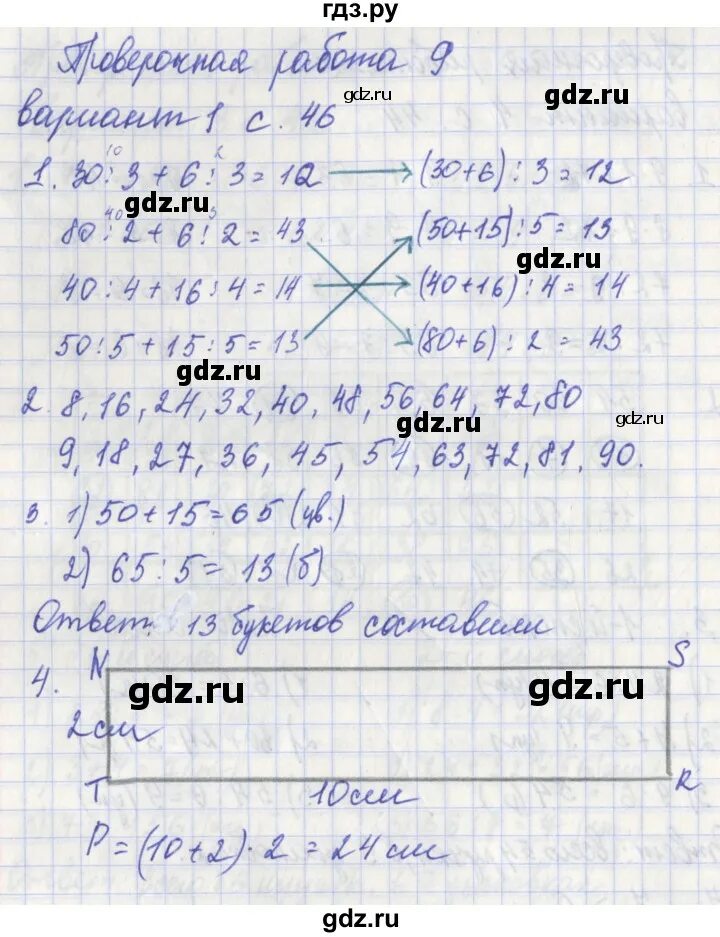 гдз.ру
Проверочная работа 9
gdz.ru
gdz.ru
вариант 1 с. 46
10 2
1. 30:3 + 6:3 = 12 → (30+6):3 = 12
gdz.ru
40 3
80:2 + 6:2 = 43 (50+15):5 = 13
gdz.ru
40:4 + 16:4 = 14 → (40+16):4 = 14
50:5 + 15:5 = 13 (80+6):2 = 43
gdz.ru
2. 8, 16, 24, 32, 40, 48, 56, 64, 72, 80
gdz.ru
gdz.ru
9, 18, 27, 36, 45, 54, 63, 72, 81, 90.
3. 1) 50+15=65 (цв.)
2) 65:5= 13 (б)
Ответ: 13 букетов составили
N S
4. gdz.ru gdz.ru
2 см
T 10 см R
P = (10+2)·2 = 24 см
gdz.ru